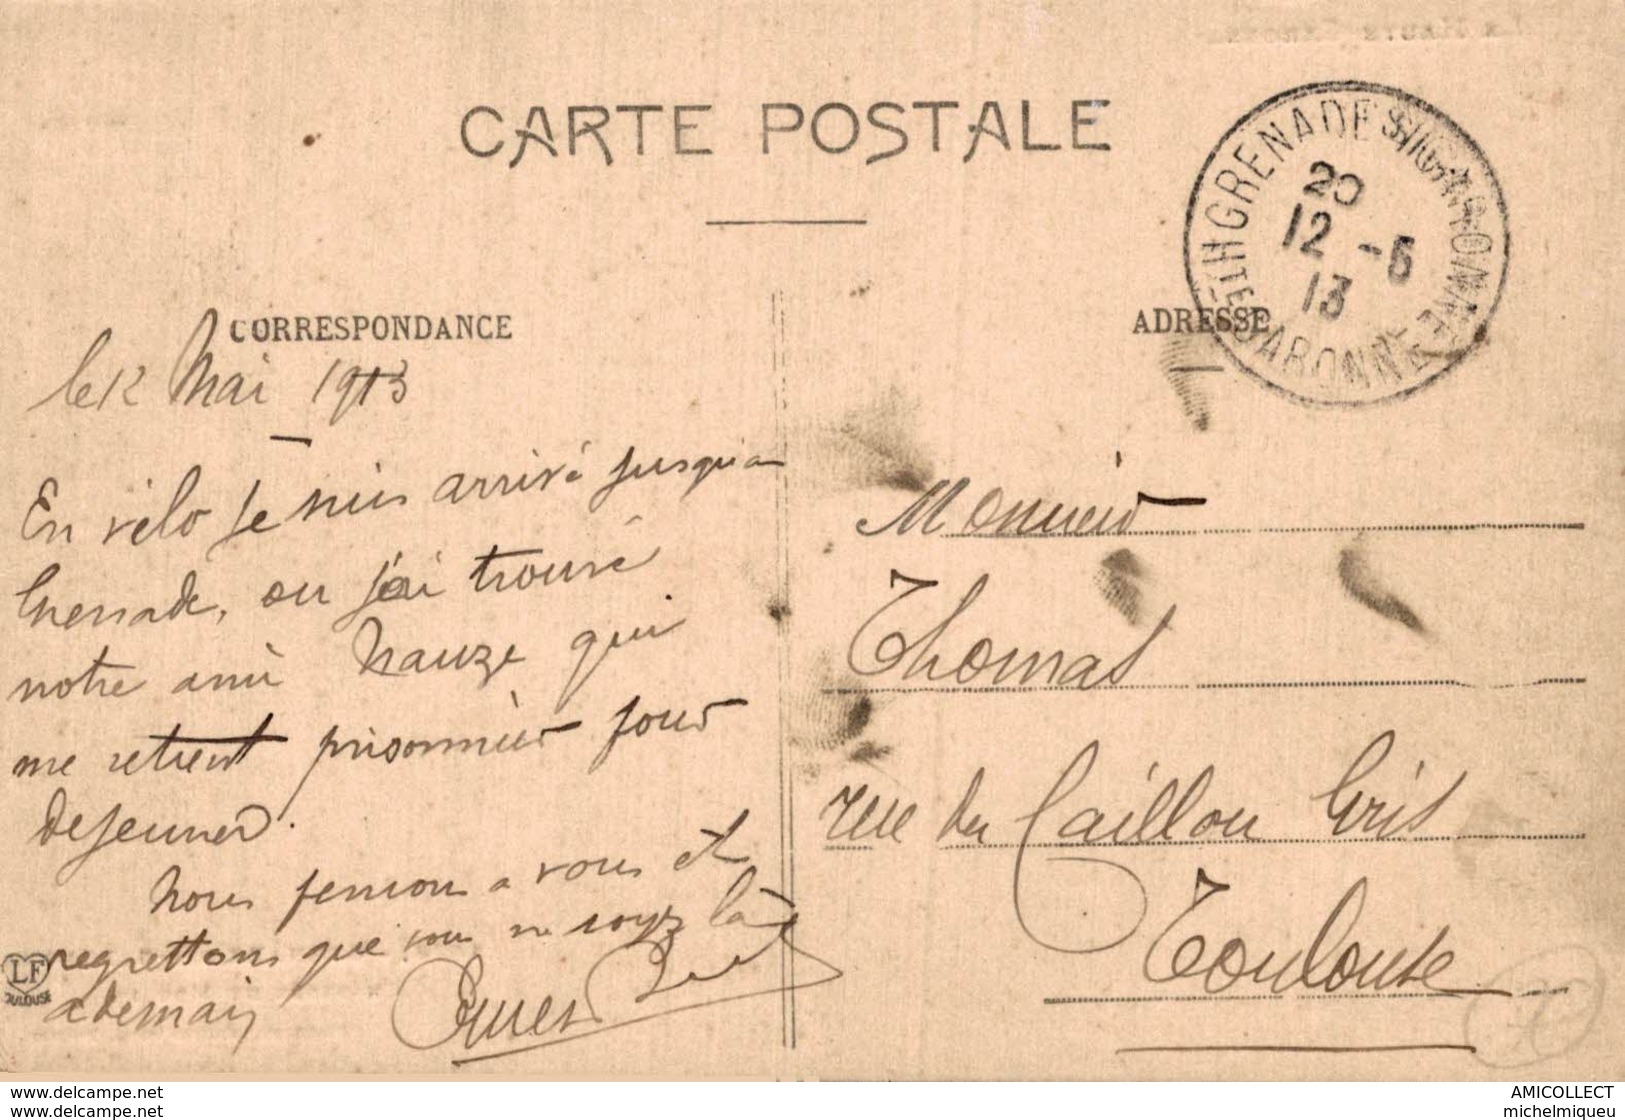 CARTE POSTALE
GRENADE S/GARONNE
HTE GARONNE
20
12 -5
13
CORRESPONDANCE
le 12 Mai 1913
En vélo je suis arrivé jusqu'a
Grenade, ou j'ai trouvé
notre ami Nauze qui
me retient prisonnier pour
dejeuner.
Nous pensons a vous et
regrettons que vous ne soyez là
a demain
LF
TOULOUSE
ADRESSE
Monsieur
Thomas
rue du Caillou Gris
Toulouse
delcampe.net
delcampe.net
AMICOLLECT
michelmiqueu